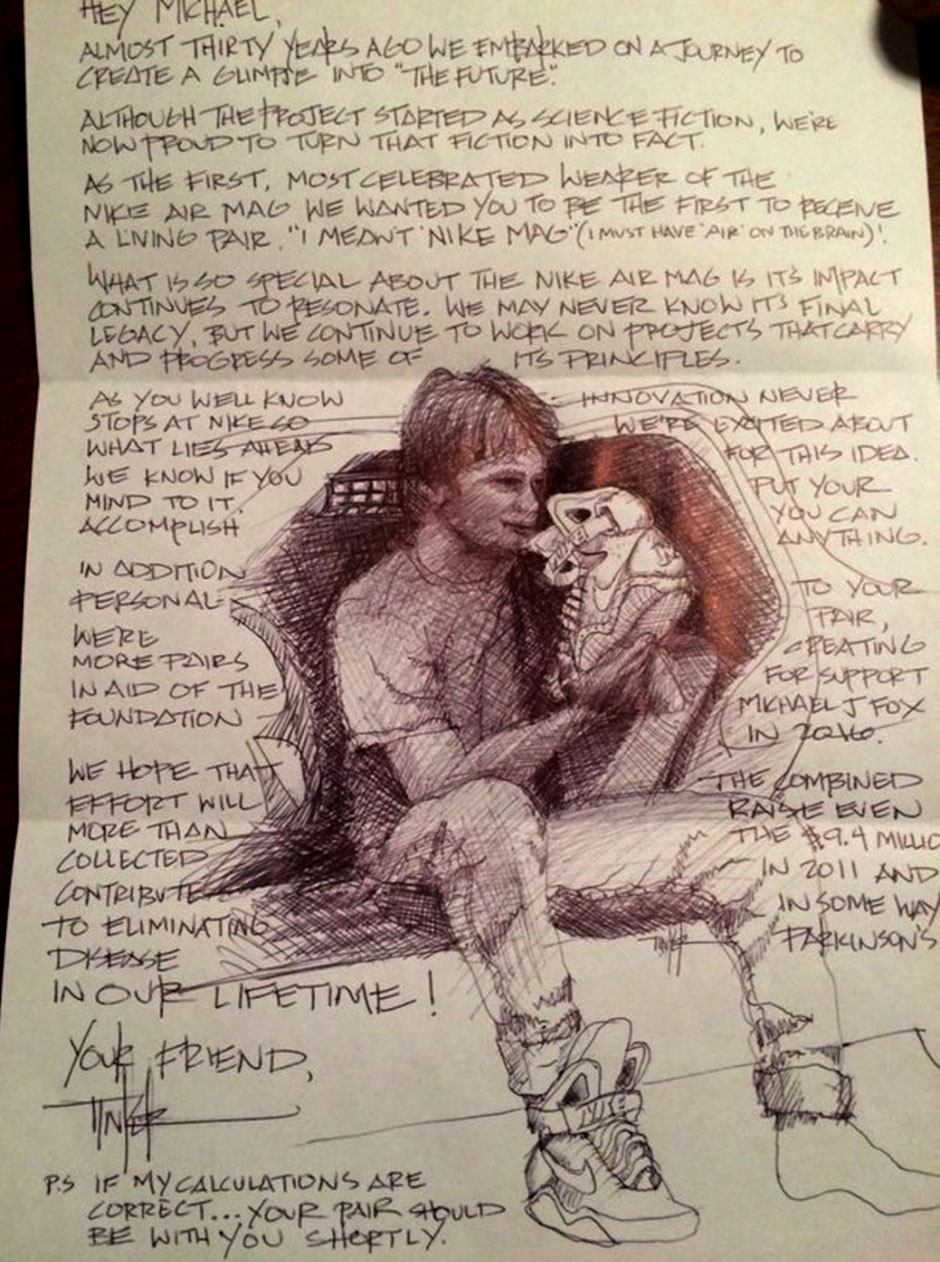 HEY MICHAEL,
ALMOST THIRTY YEARS AGO WE EMBARKED ON A JOURNEY TO
CREATE A GLIMPSE INTO "THE FUTURE".
ALTHOUGH THE PROJECT STARTED AS SCIENCE FICTION, WE'RE
NOW PROUD TO TURN THAT FICTION INTO FACT.
AS THE FIRST, MOST CELEBRATED WEARER OF THE
NIKE AIR MAG WE WANTED YOU TO BE THE FIRST TO RECEIVE
A LIVING PAIR. "I MEANT 'NIKE MAG' (I MUST HAVE 'AIR' ON THE BRAIN)!
WHAT IS SO SPECIAL ABOUT THE NIKE AIR MAG IS IT'S IMPACT
CONTINUES TO RESONATE. WE MAY NEVER KNOW IT'S FINAL
LEGACY, BUT WE CONTINUE TO WORK ON PROJECTS THAT CARRY
AND PROGRESS SOME OF ITS PRINCIPLES.
AS YOU WELL KNOW INNOVATION NEVER
STOPS AT NIKE SO WE'RE EXCITED ABOUT
WHAT LIES AHEAD FOR THIS IDEA.
WE KNOW IF YOU PUT YOUR
MIND TO IT. YOU CAN
ACCOMPLISH ANYTHING.
IN ADDITION TO YOUR
PERSONAL PAIR,
WERE CREATING
MORE PAIRS FOR SUPPORT
IN AID OF THE MICHAEL J FOX
FOUNDATION IN 2016.
WE HOPE THAT THE COMBINED
EFFORT WILL RAISE EVEN
MORE THAN THE $9.4 MILLIO
COLLECTED IN 2011 AND
CONTRIBUTE IN SOME WAY
TO ELIMINATING PARKINSON'S
DISEASE
IN OUR LIFETIME!
YOUR FRIEND,
TINKER
P.S IF MY CALCULATIONS ARE
CORRECT... YOUR PAIR SHOULD
BE WITH YOU SHORTLY.
TINKER
NIKE